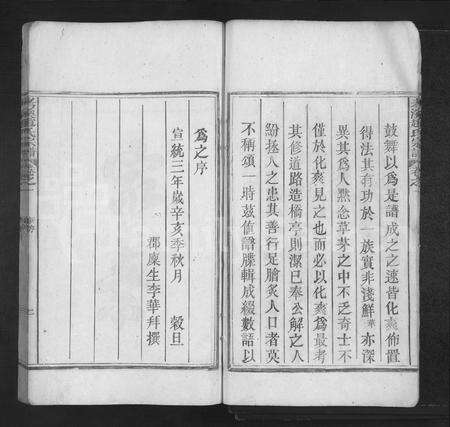 鼓舞以為是譜成之之速皆化爽佈置
得法其有功於一族實非淺鮮華亦深
異其為人黙念草茅之中不乏奇士不
僅於化爽見之也而必以化爽為最者
其修道路造橋亭則潔已奉公解之人
紛拯人之患其善行是膾炙人口者莫
不稱頌一時兹值譜牒輯成綴數語以
為之序
宣統三年歲辛亥季秋月　穀旦
郡廩生李華拜撰